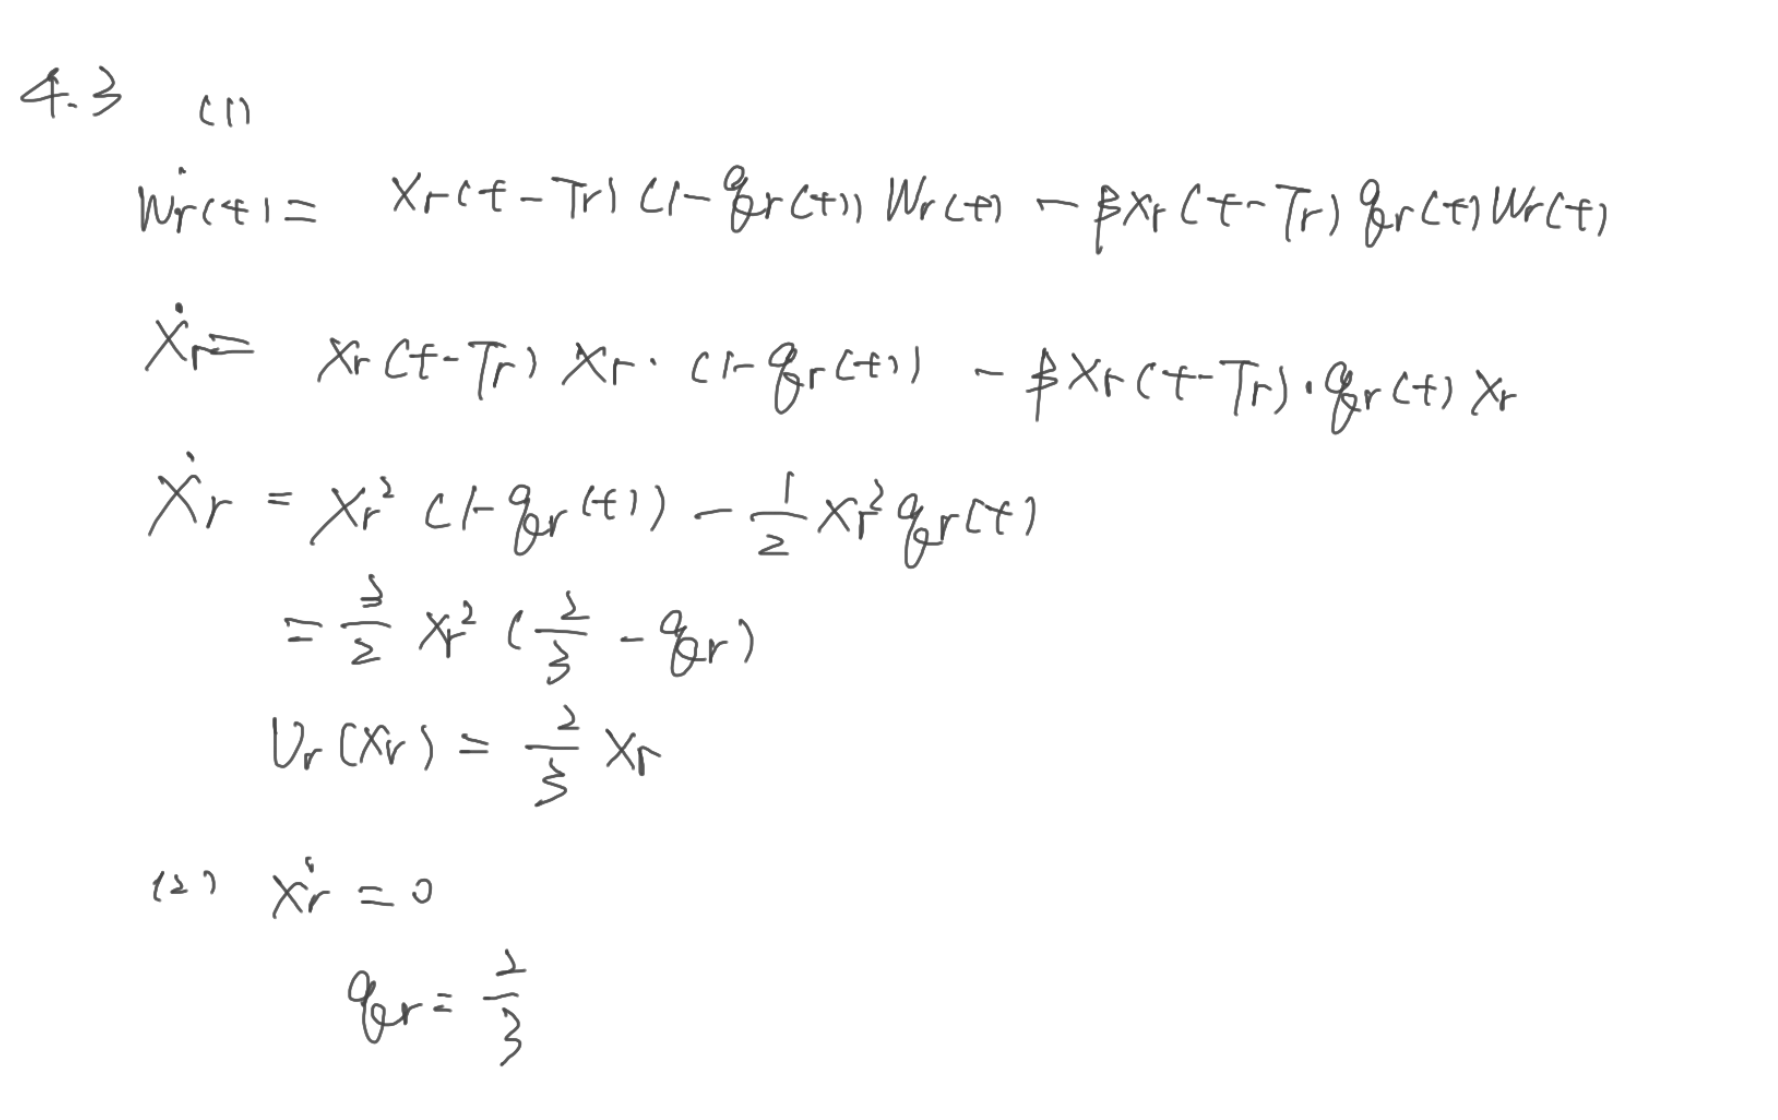 4.3 (1)
Ẇr(t) = Xr(t-Tr)(1-qr(t)) Wr(t) - βXr(t-Tr) qr(t) Wr(t)
Ẋr = Xr(t-Tr) Xr · (1-qr(t)) - βXr(t-Tr) · qr(t) Xr
Ẋr = Xr² (1-qr(t)) - 1/2 Xr² qr(t)
= 3/2 Xr² (2/3 - qr)
Ur(Xr) = 2/3 Xr
(2) Ẋr = 0
qr = 2/3